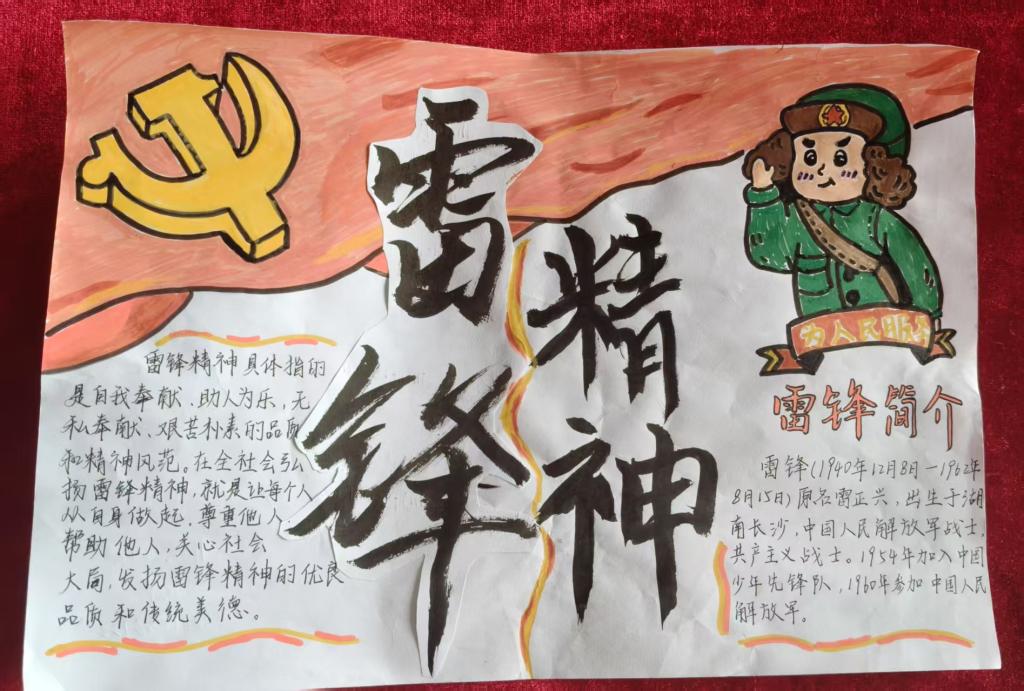 雷锋
精神
雷锋精神具体指的
是自我奉献、助人为乐，无
私奉献、艰苦朴素的品质
和精神风范。在全社会弘
扬雷锋精神，就是让每个人
从自身做起，尊重他人
帮助他人，关心社会
大局，发扬雷锋精神的优良
品质和传统美德。
为人民服务
雷锋简介
雷锋(1940年12月8日—1962年
8月15日)原名雷正兴，出生于湖
南长沙，中国人民解放军战士，
共产主义战士。1954年加入中国
少年先锋队，1960年参加中国人民
解放军。